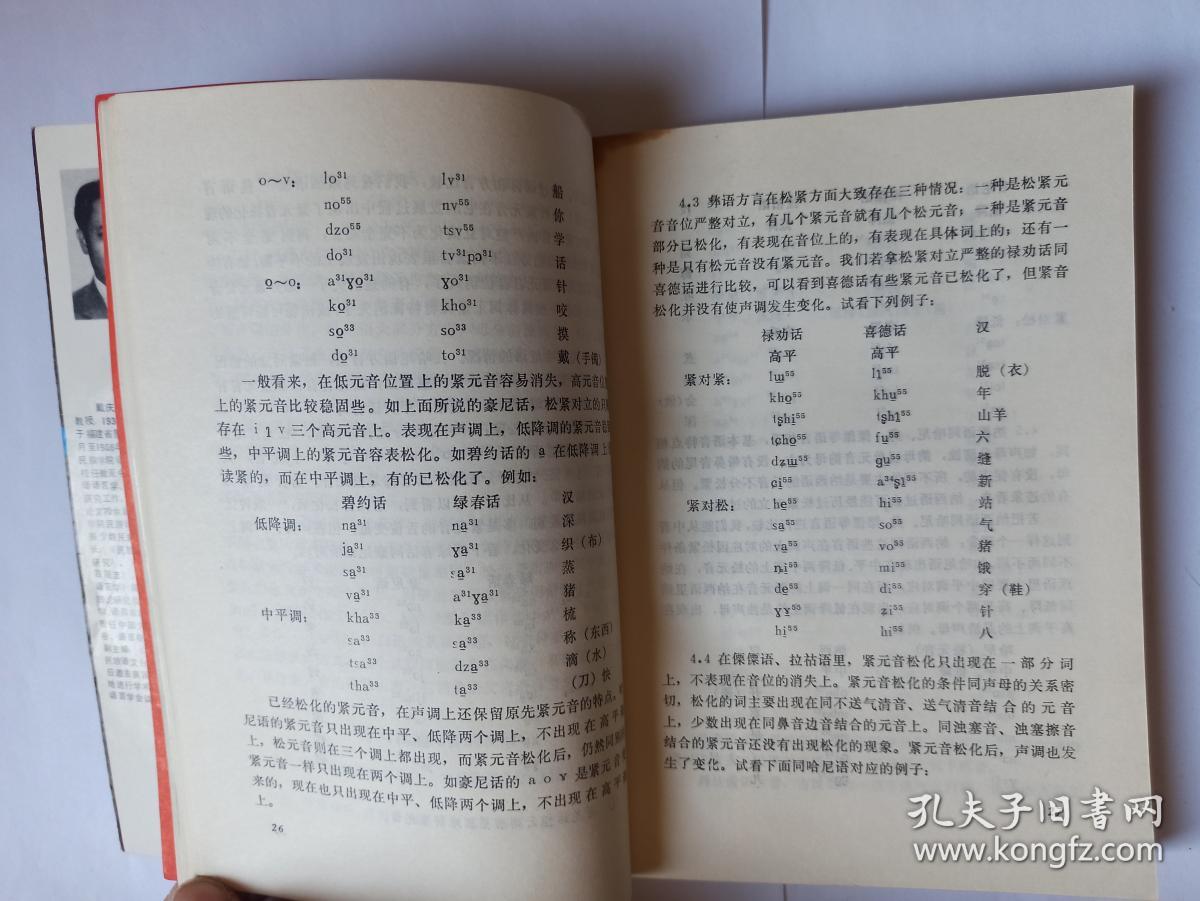 o～v： lo³¹ lv³¹ 船
no⁵⁵ nv⁵⁵ 你
dzo⁵⁵ tsv⁵⁵ 学
do³¹ tv³¹pə³¹ 话
o̱～o： a³¹ɣo̱³¹ ɣo³¹ 针
ko̱³¹ kho³¹ 咬
so̱³³ so³³ 摸
do̱³¹ to³¹ 戴（手镯）
一般看来，在低元音位置上的紧元音容易消失，高元音位
上的紧元音比较稳固些。如上面所说的豪尼话，松紧对立的只
存在 i ɿ v 三个高元音上。表现在声调上，低降调的紧元音稳
些，中平调上的紧元音容表松化。如碧约话的 a̱ 在低降调上
读紧的，而在中平调上，有的已松化了。例如：
碧约话 绿春话 汉
低降调： na̱³¹ na̱³¹ 深
ja̱³¹ ɣa̱³¹ 织（布）
sa̱³¹ sa̱³¹ 蒸
va̱³¹ a³¹ɣa̱³¹ 猪
中平调： kha³³ ka̱³³ 梳
sa³³ sa̱³³ 称（东西）
tsa³³ dza̱³³ 滴（水）
tha³³ ta̱³³ （刀）快
已经松化的紧元音，在声调上还保留原先紧元音的特点。
尼语的紧元音只出现在中平、低降两个调上，不出现在高平
上，松元音则在三个调上都出现，而紧元音松化后，仍然同
紧元音一样只出现在两个调上。如豪尼话的 a o ɤ 是紧元音
来的，现在也只出现在中平、低降两个调上，不出现在高平
上。
26
4.3 彝语方言在松紧方面大致存在三种情况：一种是松紧元
音音位严整对立，有几个紧元音就有几个松元音；一种是紧元音
部分已松化，有表现在音位上的，有表现在具体词上的；还有一
种是只有松元音没有紧元音。我们若拿松紧对立严整的禄劝话同
喜德话进行比较，可以看到喜德话有些紧元音已松化了，但紧音
松化并没有使声调发生变化。试看下列例子：
禄劝话 喜德话 汉
高平 高平
紧对紧： lɯ̱⁵⁵ lɿ̱⁵⁵ 脱（衣）
kho̱⁵⁵ khu̱⁵⁵ 年
tʂhi̱⁵⁵ tʂhɿ̱⁵⁵ 山羊
tɕho̱⁵⁵ fu̱⁵⁵ 六
dzɯ̱⁵⁵ gu̱⁵⁵ 缝
ɕi̱⁵⁵ a³⁴ʂɿ̱⁵⁵ 新
紧对松： he̱⁵⁵ hi⁵⁵ 站
sa̱⁵⁵ so⁵⁵ 气
va̱⁵⁵ vo⁵⁵ 猪
ni̱⁵⁵ mi⁵⁵ 饿
de̱⁵⁵ di⁵⁵ 穿（鞋）
ɣɤ̱⁵⁵ zi⁵⁵ 针
hi̱⁵⁵ hi⁵⁵ 八
4.4 在傈僳语、拉祜语里，紧元音松化只出现在一部分词
上，不表现在音位的消失上。紧元音松化的条件同声母的关系密
切，松化的词主要出现在同不送气清音、送气清音结合的元音
上，少数出现在同鼻音边音结合的元音上。同浊塞音、浊塞擦音
结合的紧元音还没有出现松化的现象。紧元音松化后，声调也发
生了变化。试看下面同哈尼语对应的例子：
孔夫子旧书网
www.kongfz.com